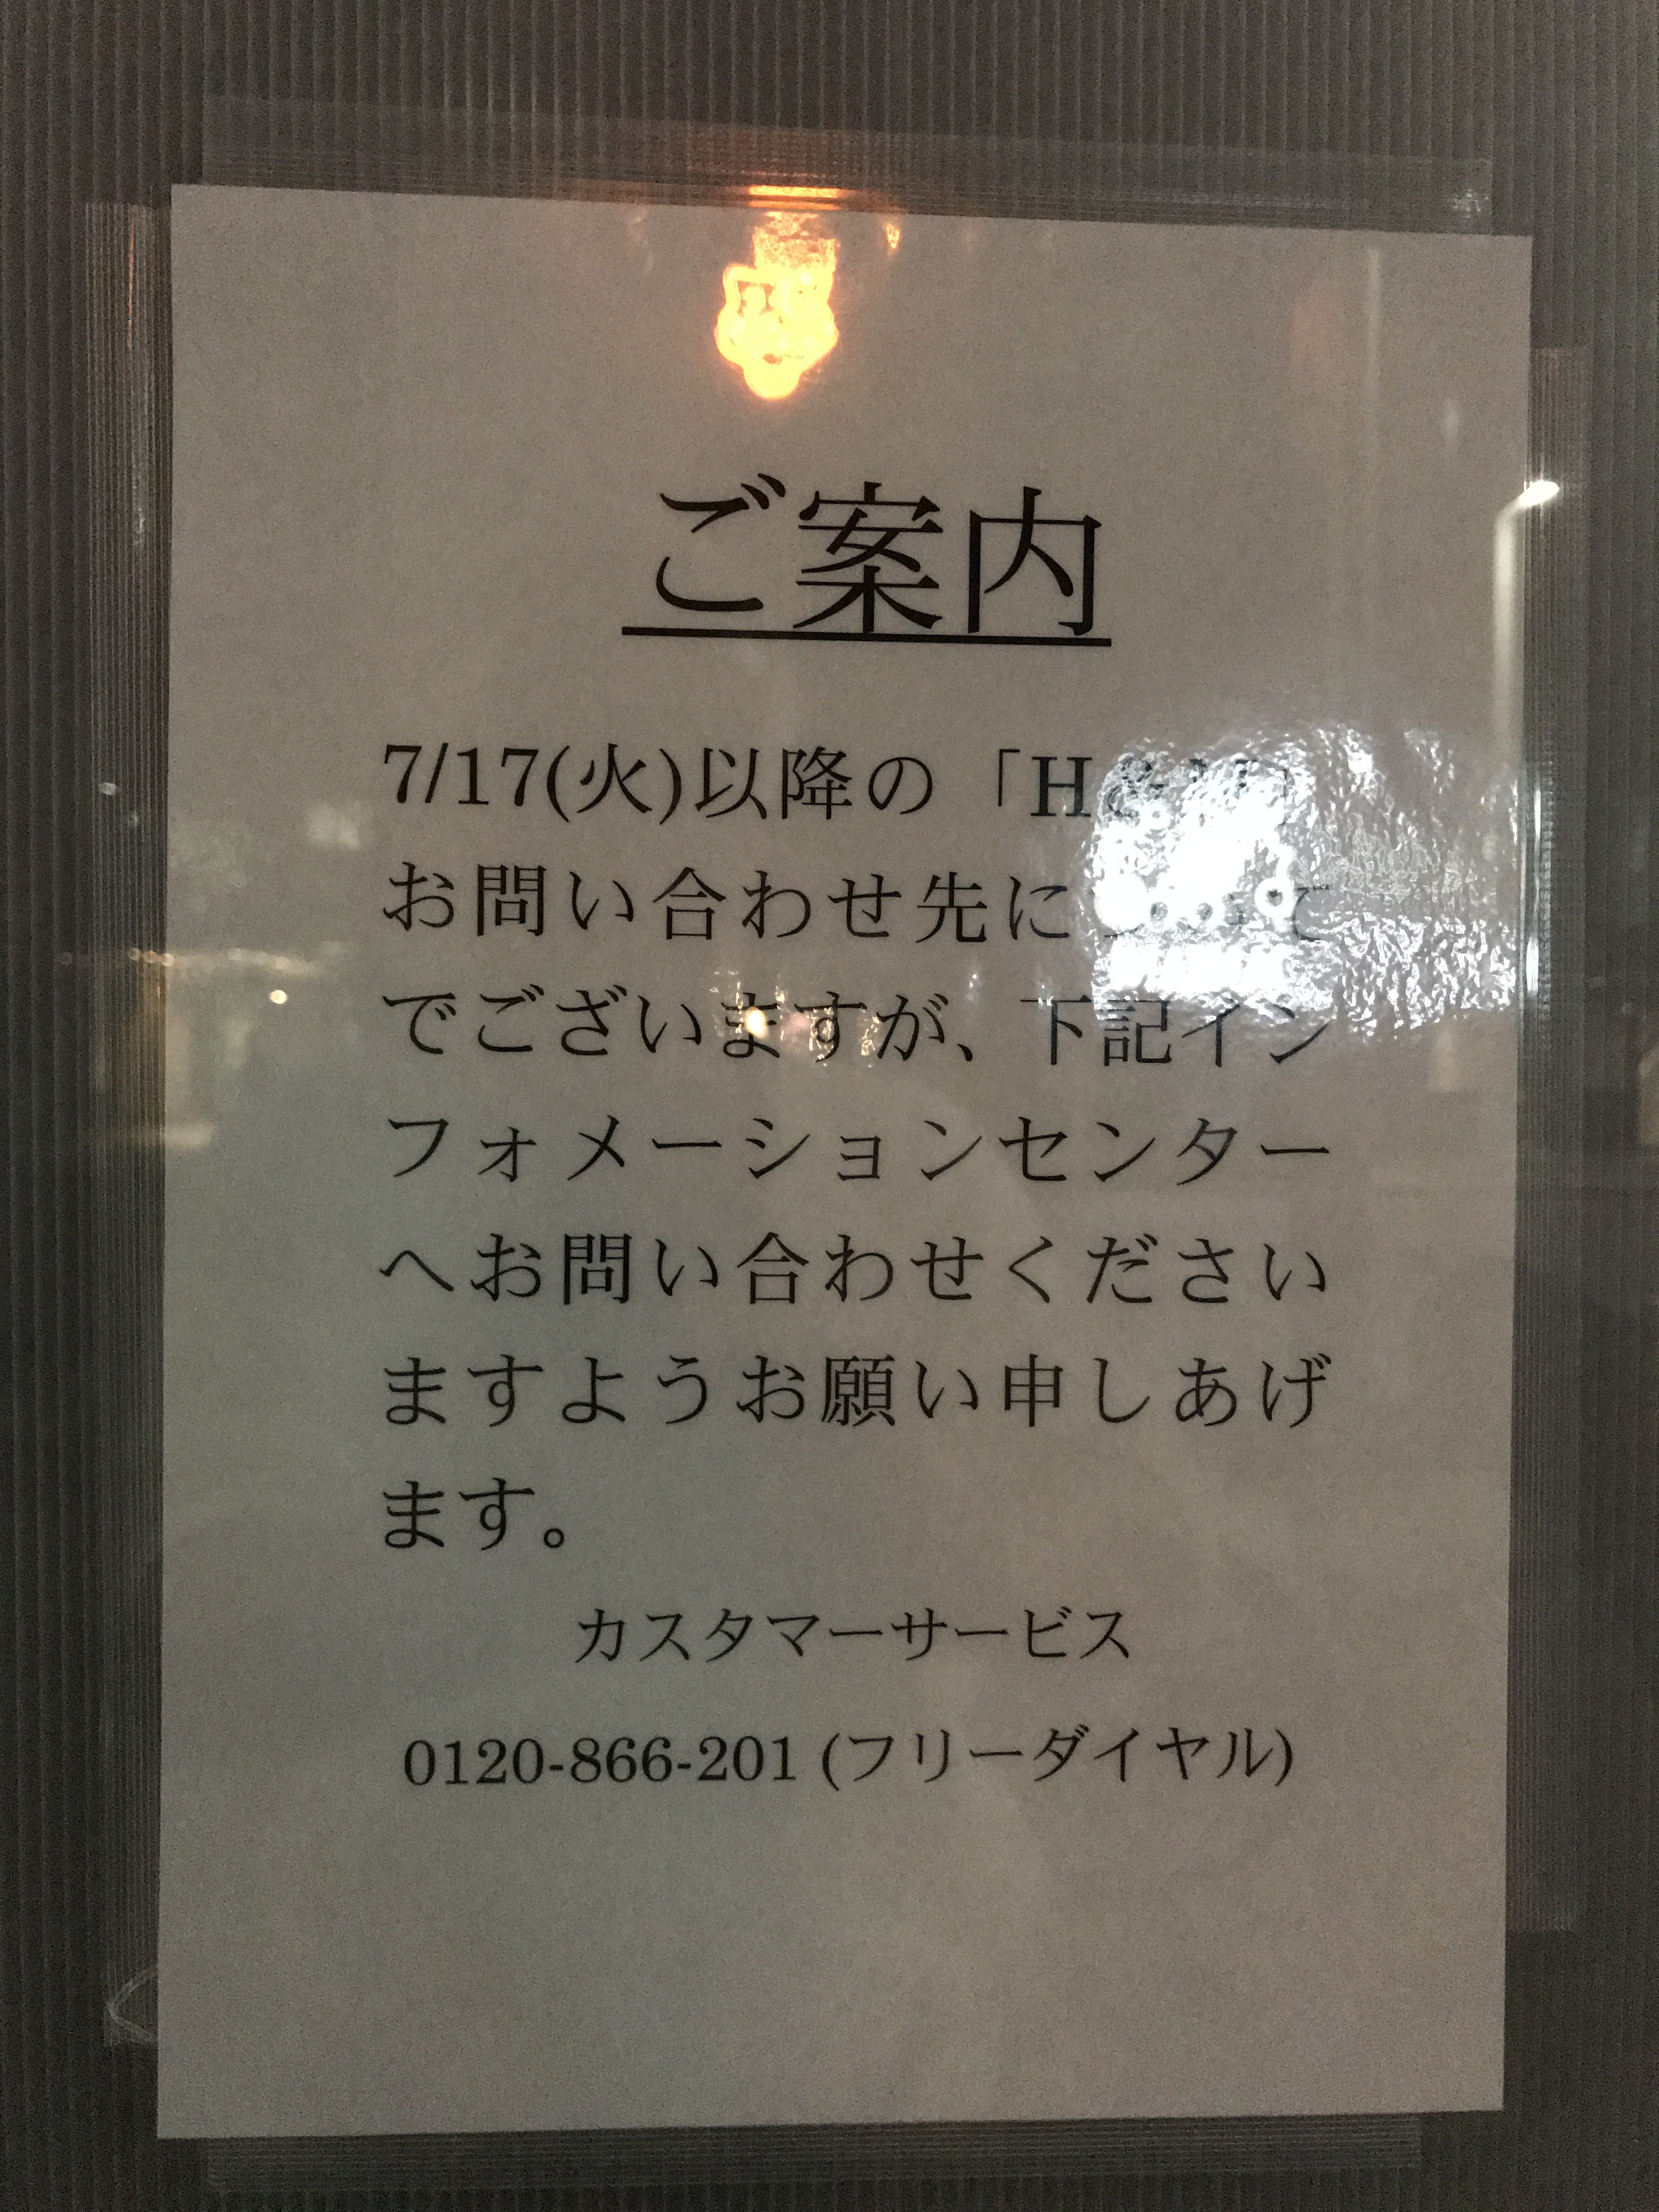 ご案内
7/17(火)以降の「H&
お問い合わせ先について
でございますが、下記イン
フォメーションセンター
へお問い合わせください
ますようお願い申しあげ
ます。
カスタマーサービス
0120-866-201 (フリーダイヤル)